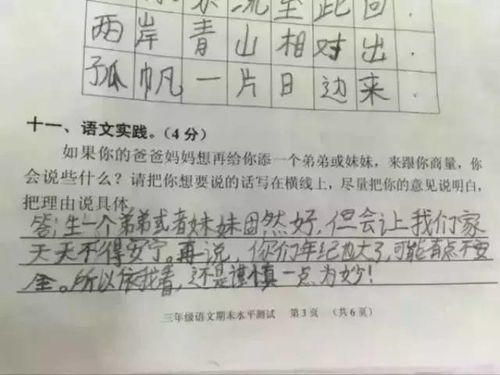 流至此回.
两岸青山相对出.
孤帆一片日边来.
十一、语文实践。(4分)
如果你的爸爸妈妈想再给你添一个弟弟或妹妹，来跟你商量，你
会说些什么？请把你想要说的话写在横线上，尽量把你的意见说明白，
把理由说具体。
答:生一个弟弟或者妹妹固然好,但会让我们家
天天不得安宁。再说,你们年纪也大了,可能有点不安
全。所以依我看,还是谨慎一点为妙!
三年级语文期末水平测试 第3页 (共6页)